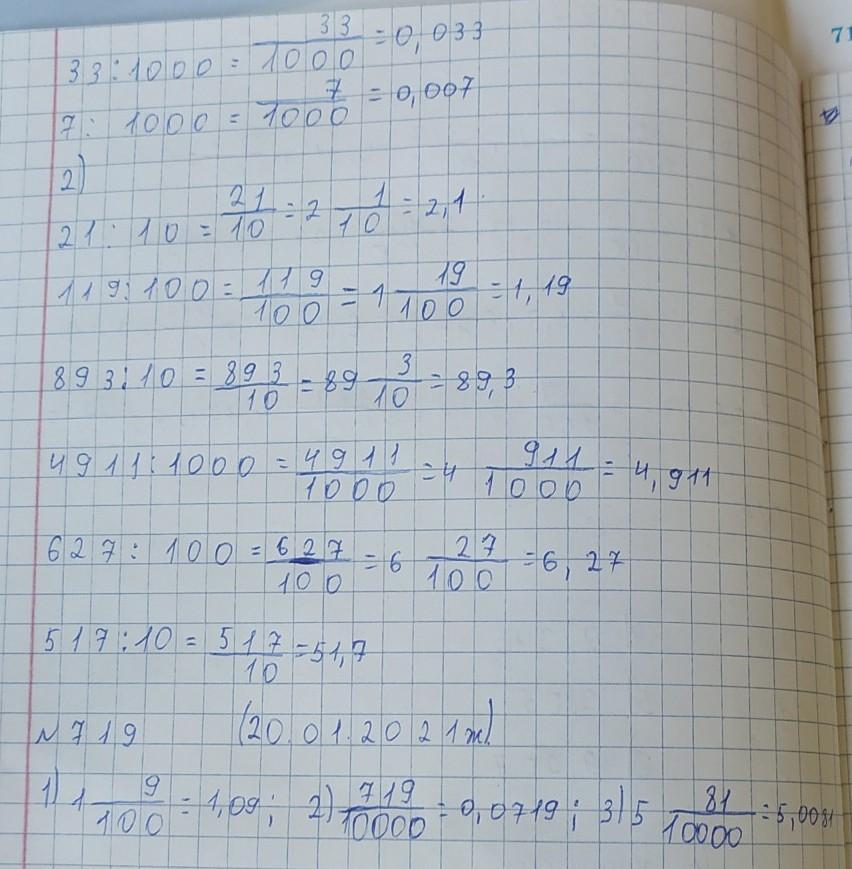 33:1000 = 33/1000 = 0,033
7: 1000 = 7/1000 = 0,007
2)
21: 10 = 21/10 = 2 1/10 = 2,1
119:100 = 119/100 = 1 19/100 = 1,19
893:10 = 893/10 = 89 3/10 = 89,3
4911:1000 = 4911/1000 = 4 911/1000 = 4,911
627: 100 = 627/100 = 6 27/100 = 6,27
517:10 = 517/10 = 51,7
№719 (20.01.2021ж)
1) 1 9/100 = 1,09; 2) 719/10000 = 0,0719; 3) 5 81/10000 = 5,0081
71